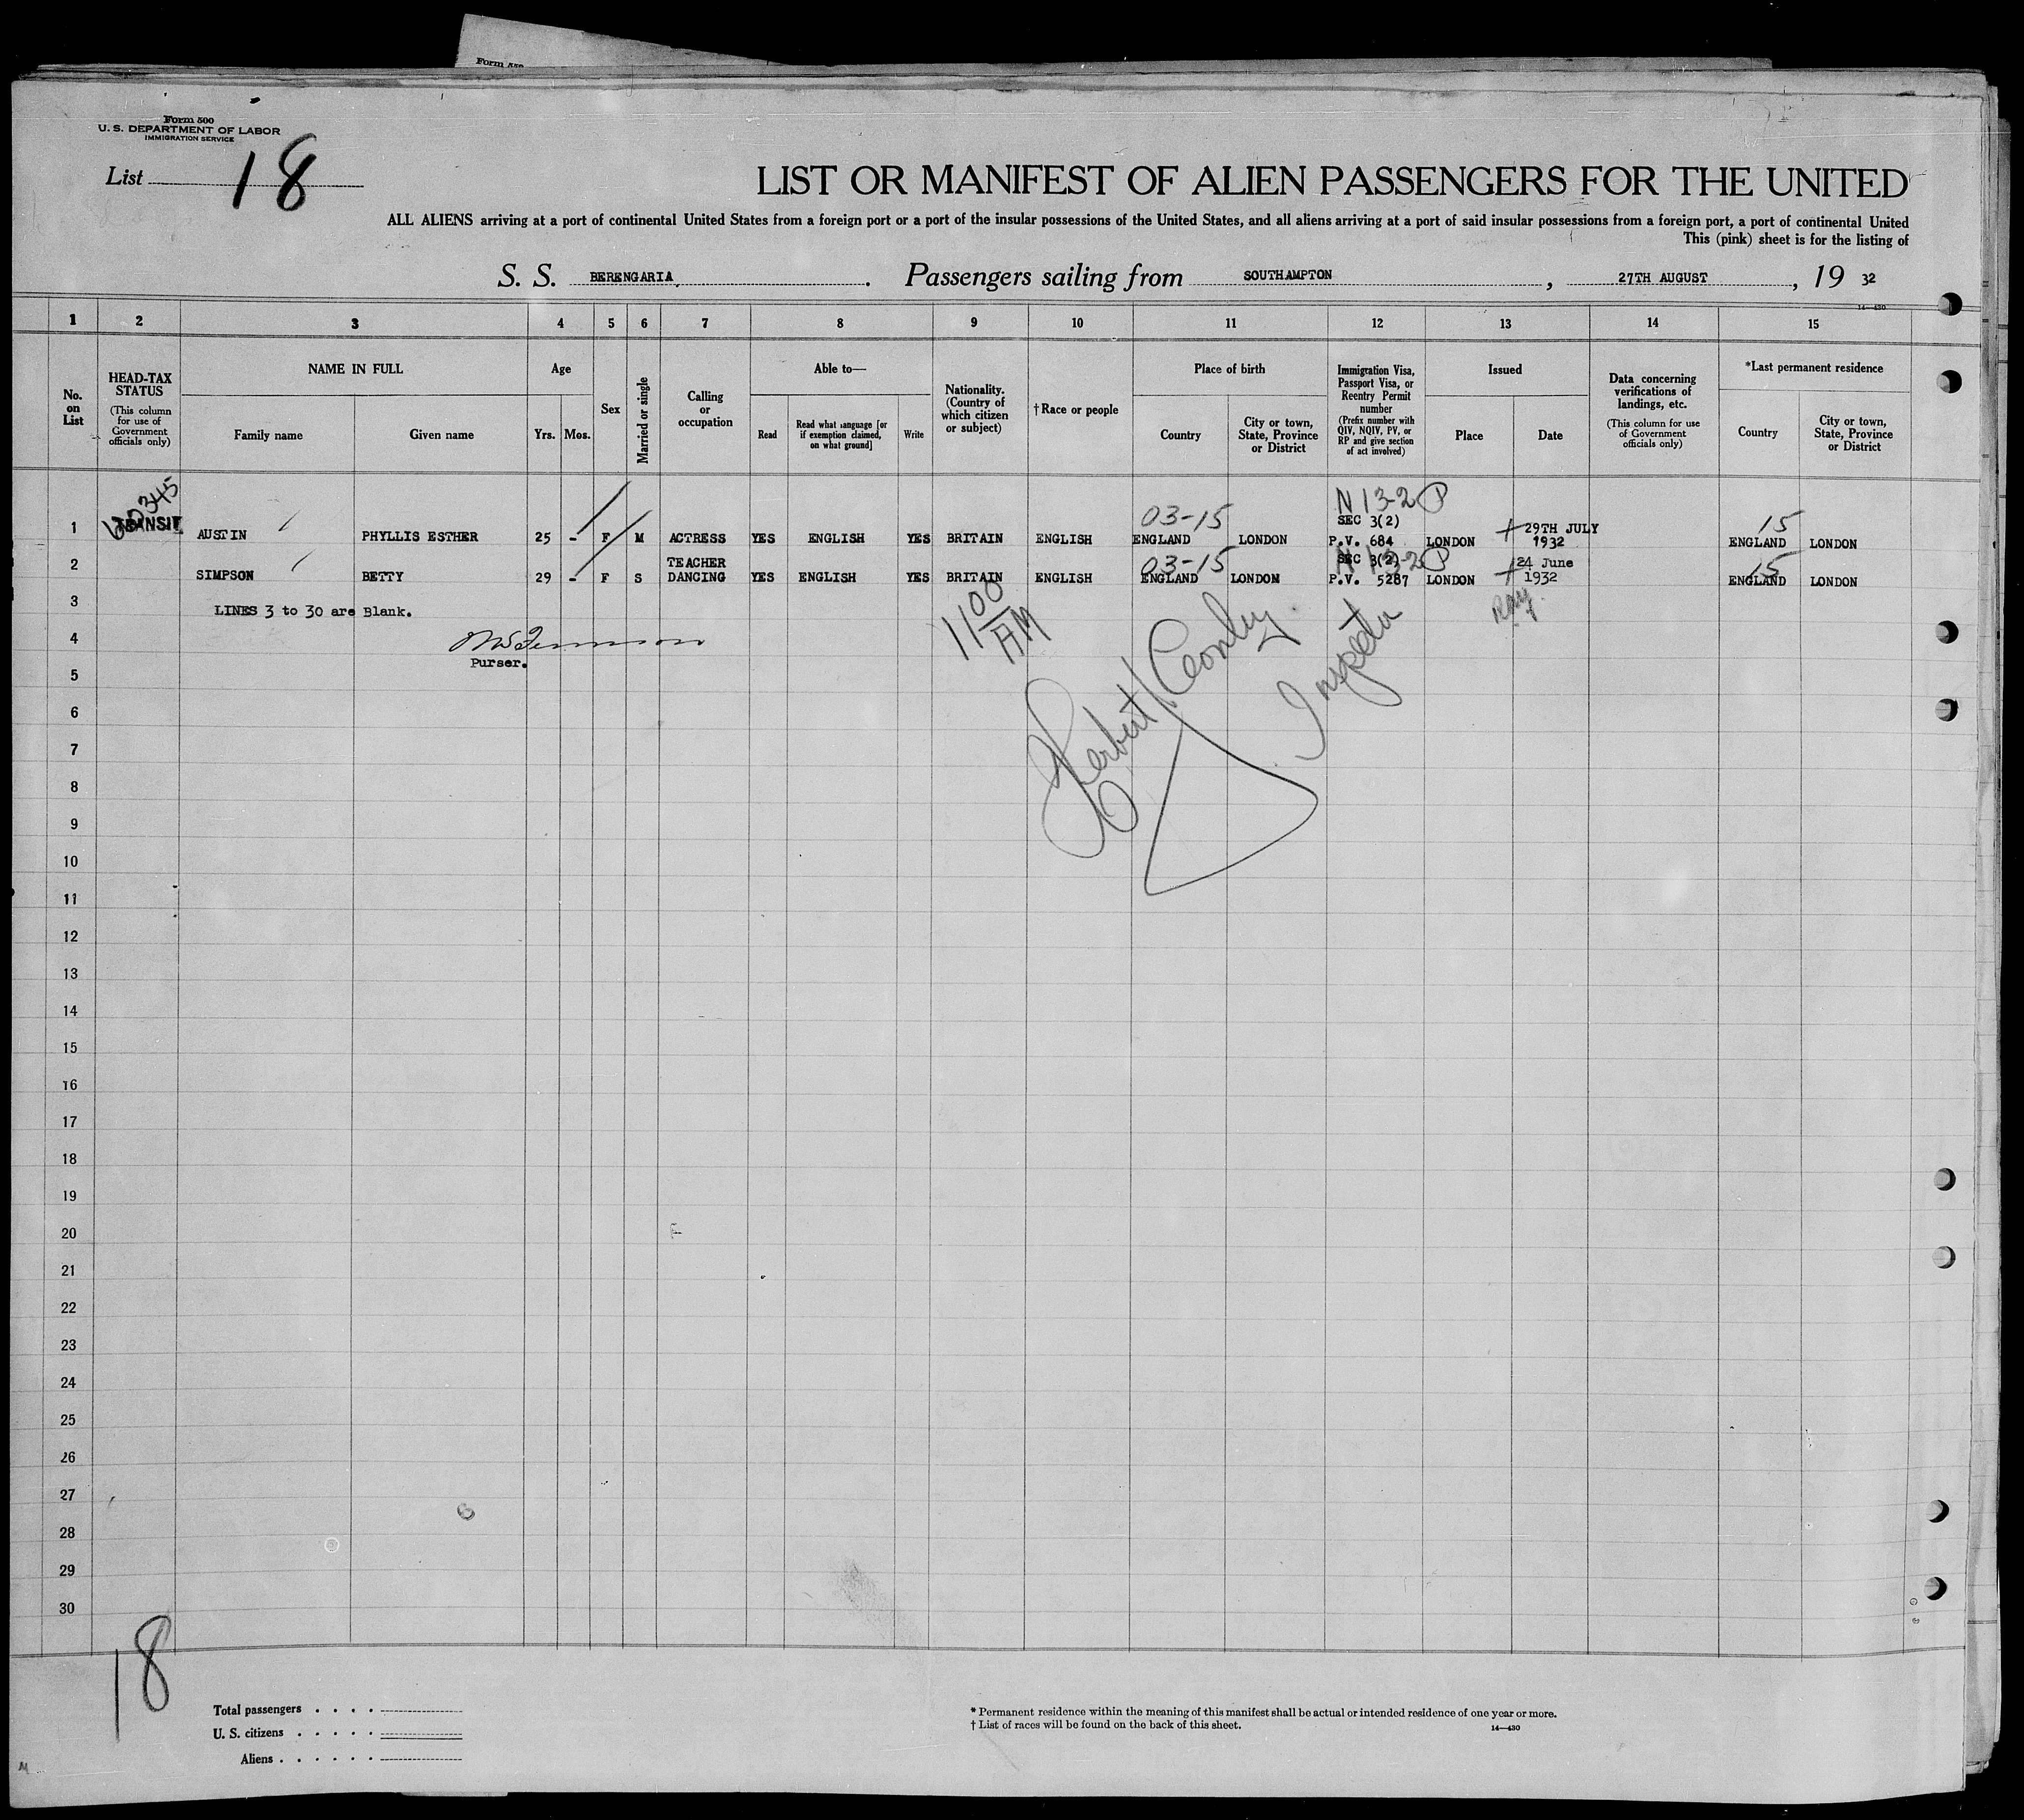 Form 500
U. S. DEPARTMENT OF LABOR
IMMIGRATION SERVICE
List 18
LIST OR MANIFEST OF ALIEN PASSENGERS FOR THE UNITED
ALL ALIENS arriving at a port of continental United States from a foreign port or a port of the insular possessions of the United States, and all aliens arriving at a port of said insular possessions from a foreign port, a port of continental United
This (pink) sheet is for the listing of
S. S. BERENGARIA. Passengers sailing from SOUTHAMPTON, 27TH AUGUST, 19 32
14—430
1 2 3 4 5 6 7 8 9 10 11 12 13 14 15
No. on List
HEAD-TAX STATUS
(This column for use of Government officials only)
NAME IN FULL
Family name Given name
Age
Yrs. Mos.
Sex
Married or single
Calling or occupation
Able to—
Read
Read what language [or if exemption claimed, on what ground]
Write
Nationality. (Country of which citizen or subject)
†Race or people
Place of birth
Country
City or town, State, Province or District
Immigration Visa, Passport Visa, or Reentry Permit number
(Prefix number with QIV, NQIV, PV, or RP and give section of act involved)
Issued
Place Date
Data concerning verifications of landings, etc.
(This column for use of Government officials only)
*Last permanent residence
Country
City or town, State, Province or District
N 13-2 P
03-15 SEC 3(2) 15
TRANSIT
1 AUSTIN PHYLLIS ESTHER 25 - F M ACTRESS YES ENGLISH YES BRITAIN ENGLISH ENGLAND LONDON P.V. 684 LONDON 29TH JULY 1932 ENGLAND LONDON
03-15 SEC 3(2) N 13-2 P 15
2 SIMPSON BETTY 29 - F S TEACHER DANCING YES ENGLISH YES BRITAIN ENGLISH ENGLAND LONDON P.V. 5287 LONDON 24 June 1932 ENGLAND LONDON
3 LINES 3 to 30 are Blank.
1100 AM
4
Purser.
Herbert
Inspector
5
6
7
8
9
10
11
12
13
14
15
16
17
18
19
20
21
22
23
24
25
26
27
28
29
30
18
Total passengers . . . .
U. S. citizens . . . . .
Aliens . . . . . .
* Permanent residence within the meaning of this manifest shall be actual or intended residence of one year or more.
† List of races will be found on the back of this sheet.
14—430